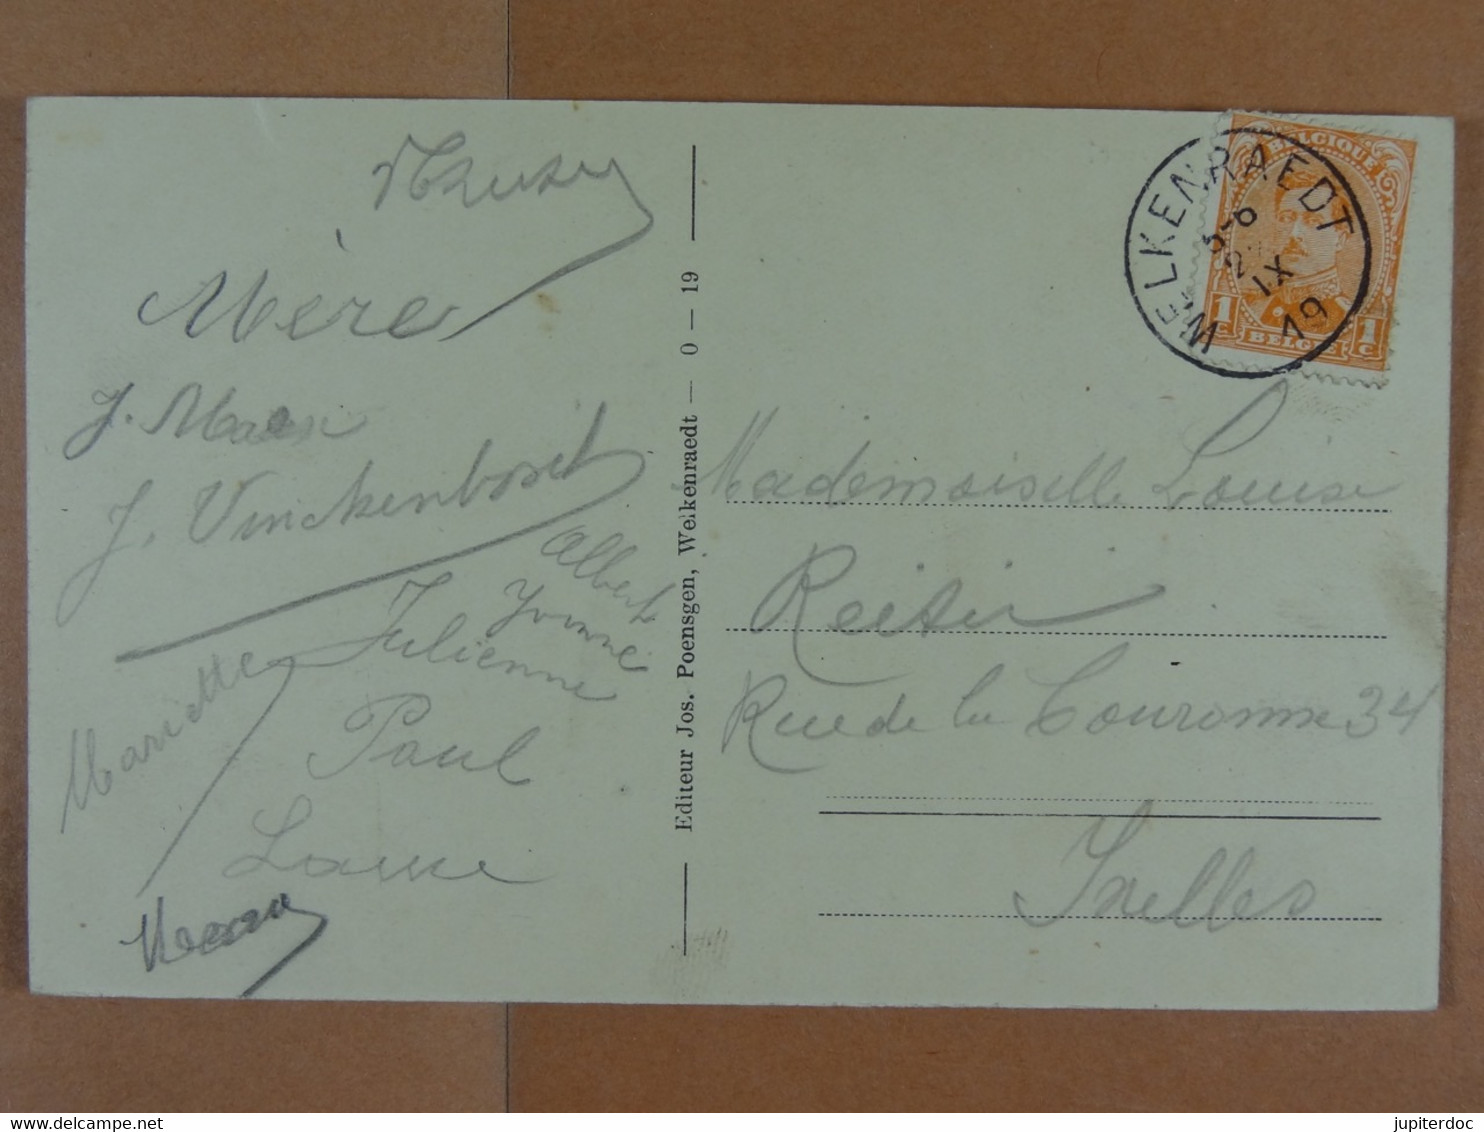 Mère
J. Maen
J. Vinckenbosch
Albert
Yvonne
Julienne
Mariette
Paul
Editeur Jos. Poensgen, Welkenraedt — 0 — 19
WELKENRAEDT
5-6
IX
19
BELGIQUE
1c BELGIË 1c
Mademoiselle Louise
Rue de la Couronne 34
Ixelles
www.delcampe.net
jupiterdoc